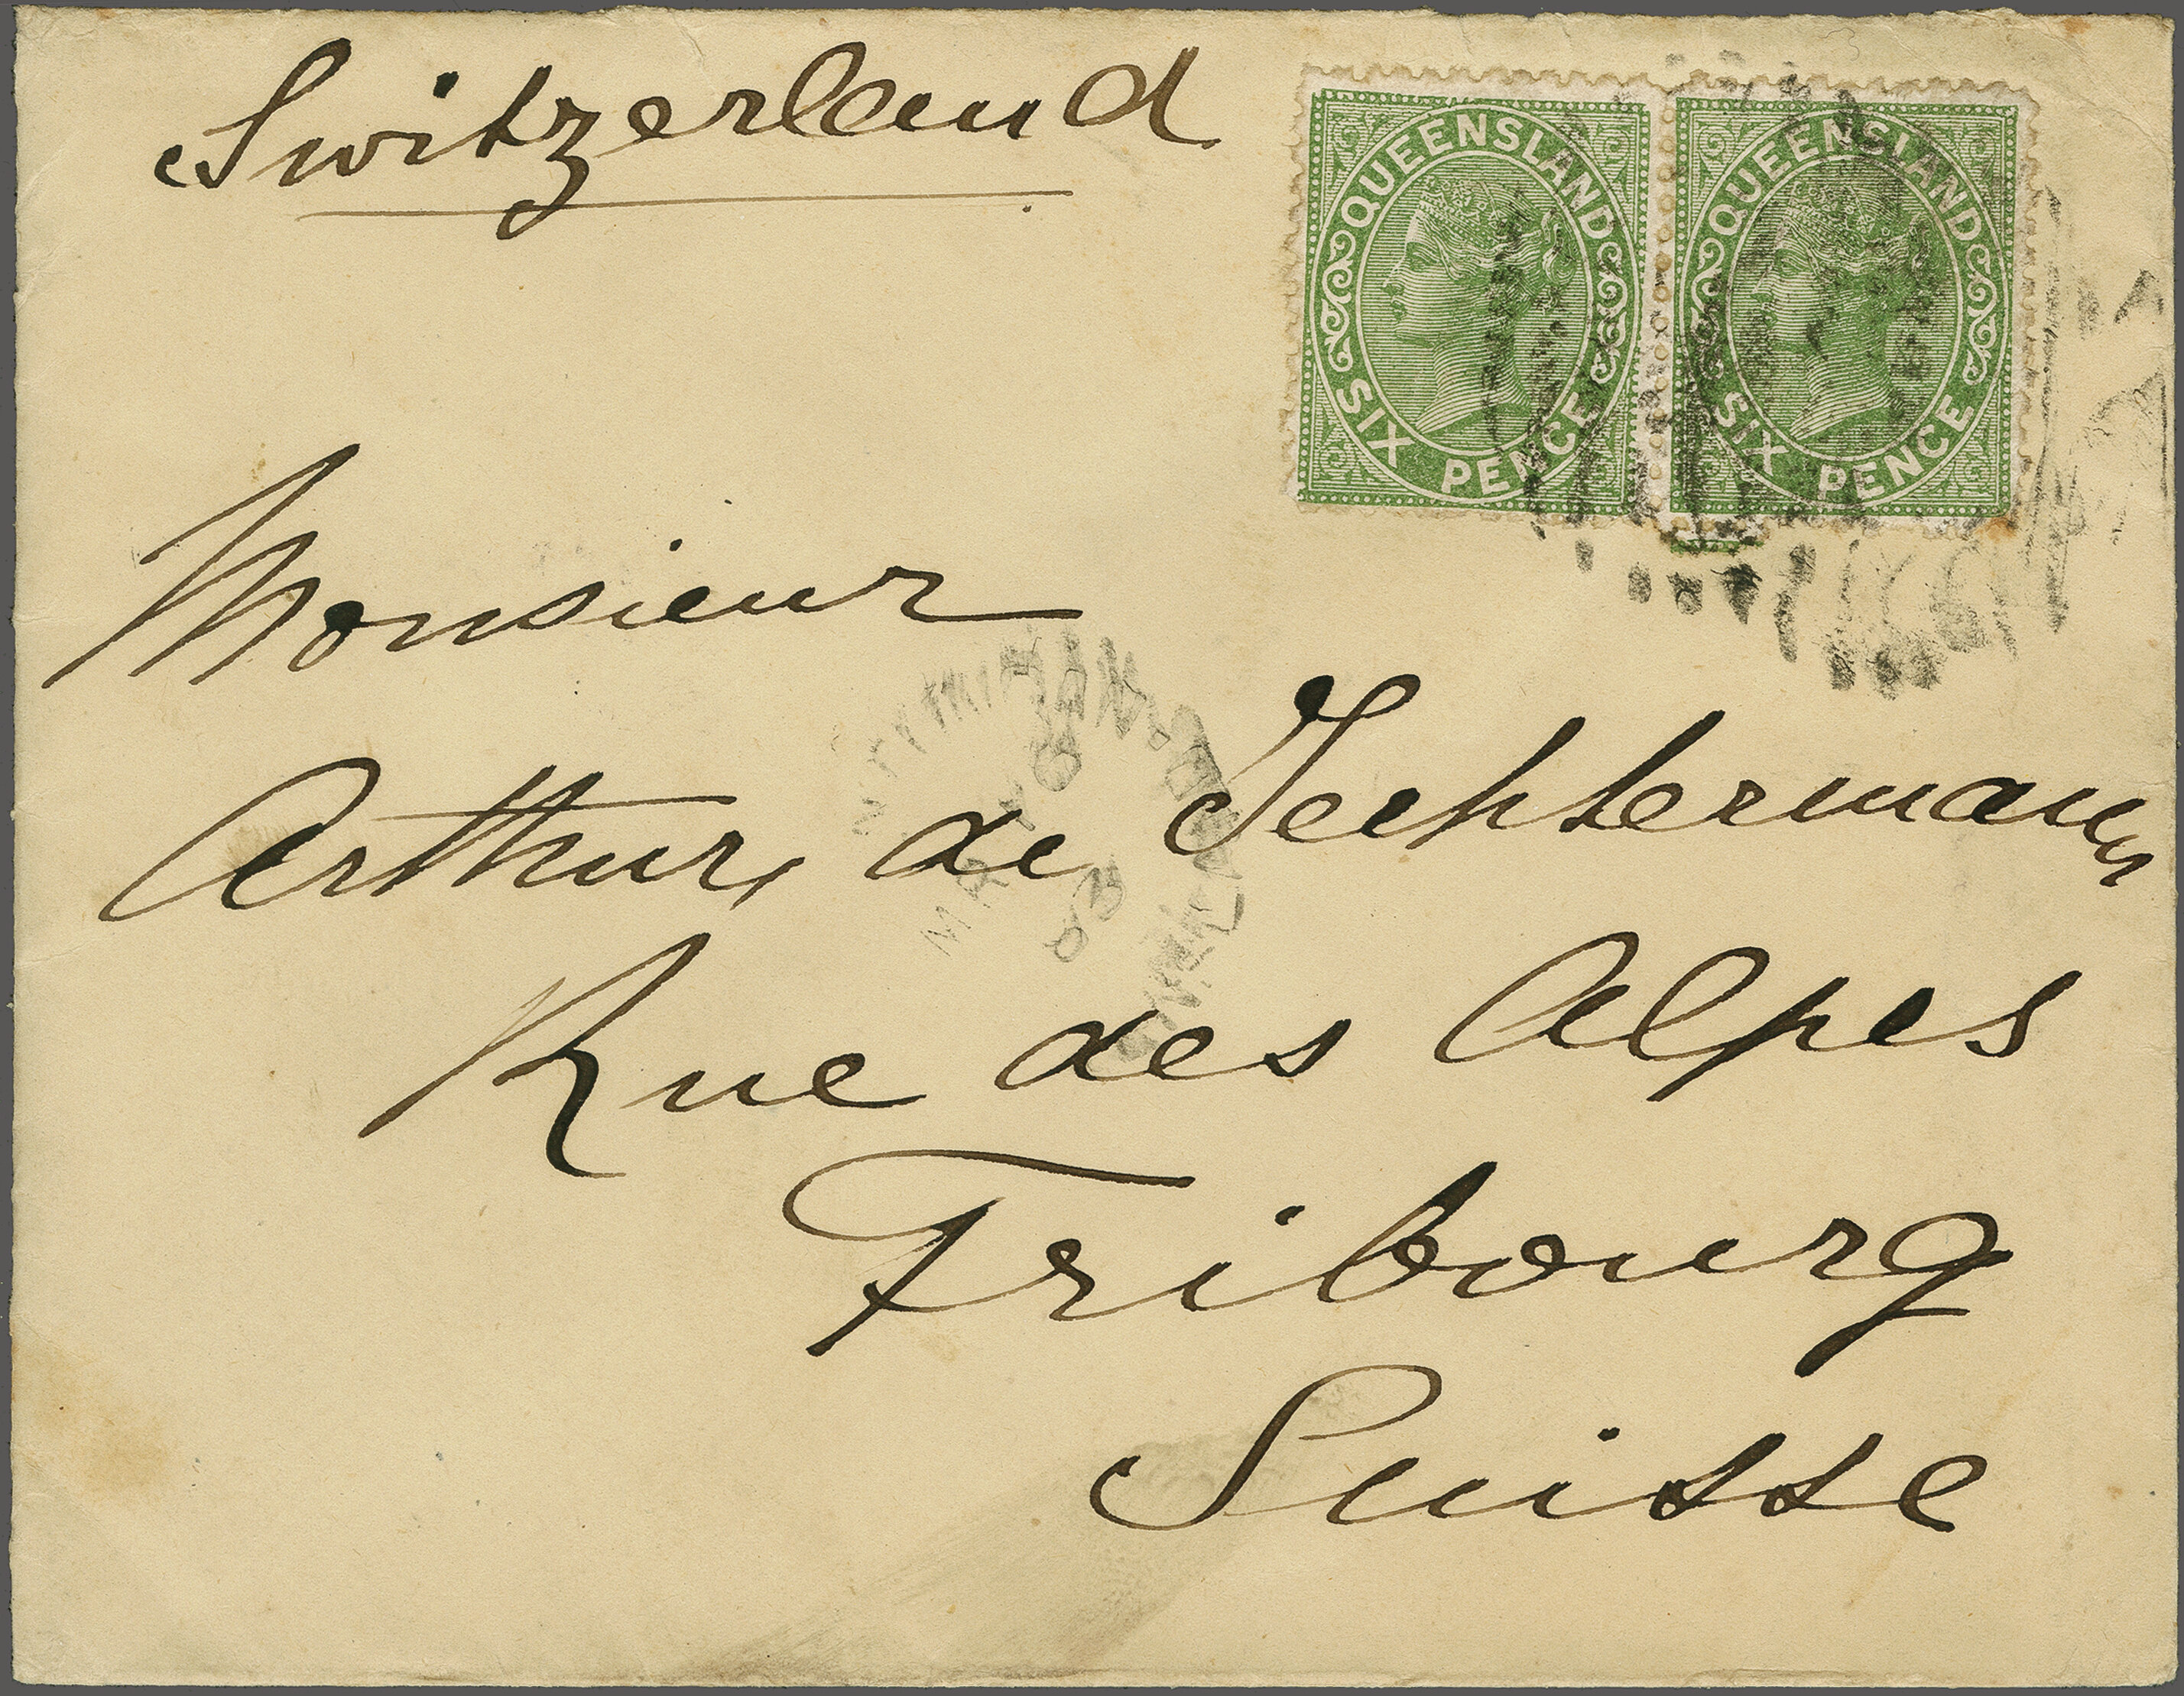 Switzerland
QUEENSLAND
SIX PENCE
QUEENSLAND
SIX PENCE
Monsieur
Arthur de Techtermann
MAY 6
Rue des Alpes
Fribourg
Suisse